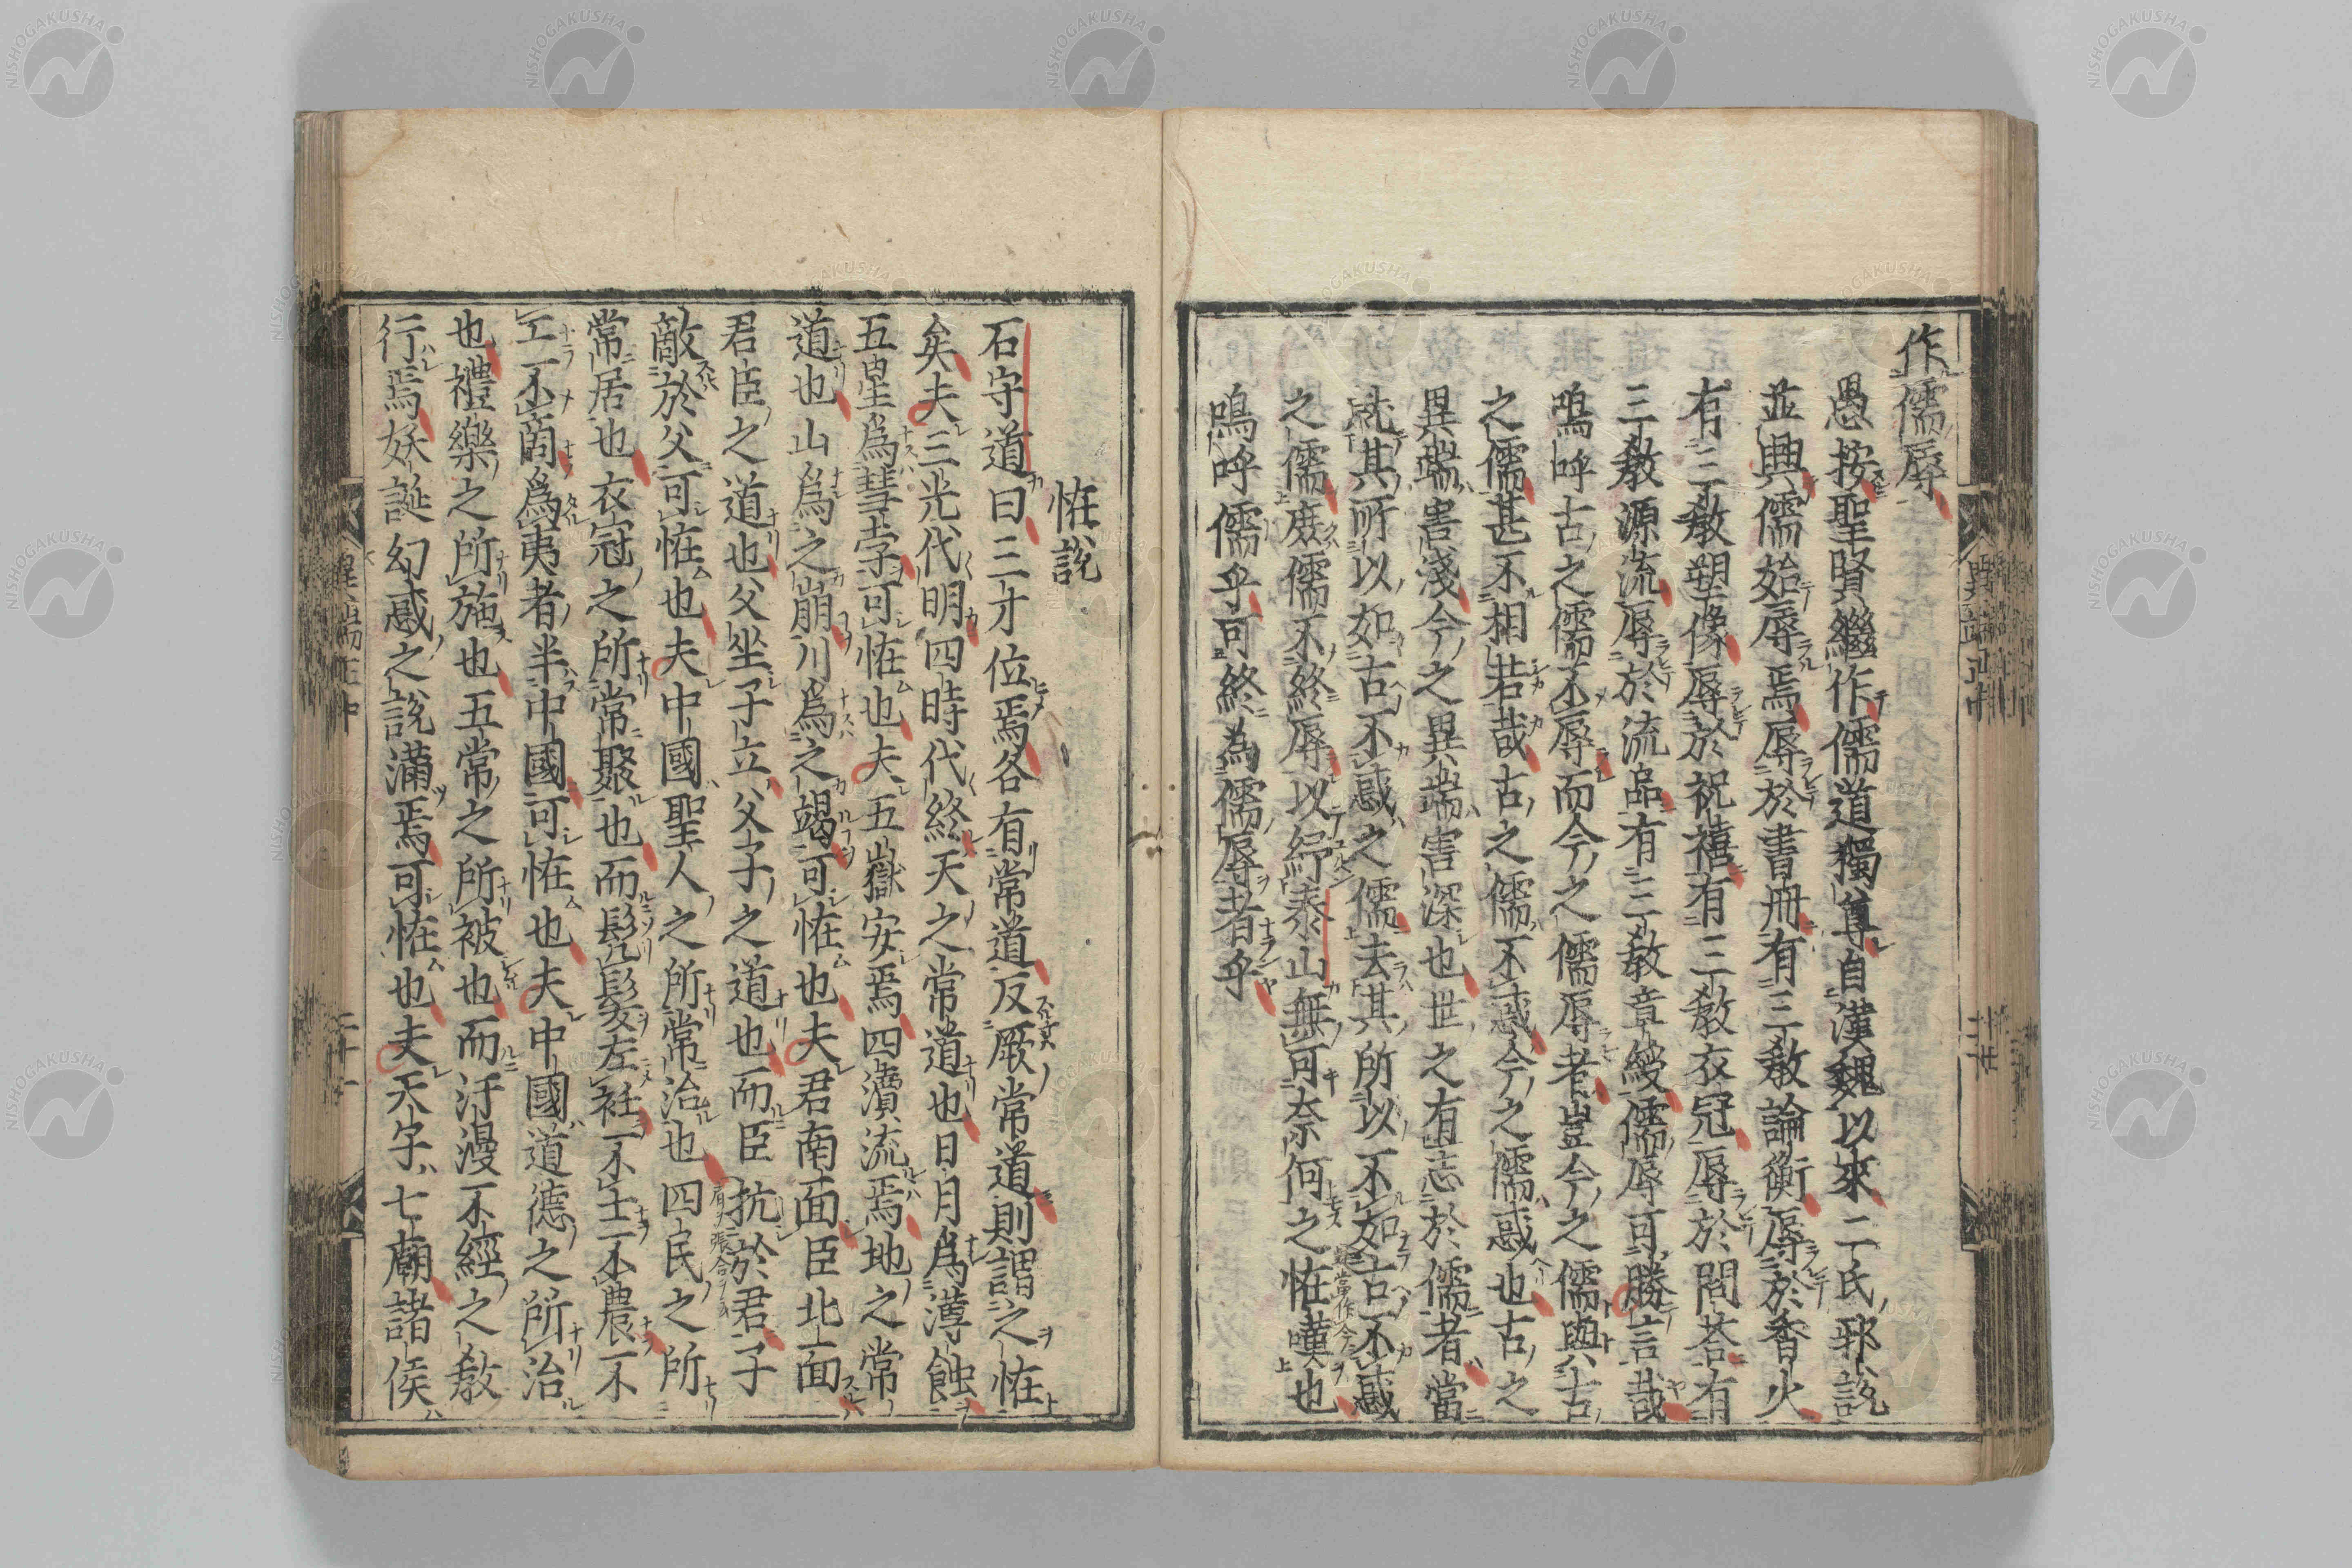 作儒辱
愚按聖賢繼作儒道獨尊自漢魏以來二氏邪說
並興儒始辱焉辱於書冊有三敎論衡辱於香火
有三敎塑像辱於祝禧有三敎衣冠辱於問荅有
三敎源流辱於流品有三敎章綬儒辱可勝言哉
嗚呼古之儒不辱而今之儒辱者豈今之儒與古
之儒甚不相若哉古之儒不惑今之儒惑也古之
異端害淺今之異端害深也世之有志於儒者當
就其所以如古不惑之儒去其所以不如古不惑
之儒庶儒不終辱以紓泰山無可奈何之恠嘆也
嗚呼儒乎可終為儒辱者乎
恠說
石守道曰三才位焉各有常道反厥常道則謂之恠
矣夫三光代明四時代終天之常道也日月為薄蝕
五星為彗孛可恠也夫五嶽安焉四瀆流焉地之常
道也山為之崩川為之竭可恠也夫君南面臣北面
君臣之道也父坐子立父子之道也而臣抗於君子
敵於父可恠也夫中國聖人之所常治也四民之所
常居也衣冠之所常聚也而髠髮左衽不士不農不
工不商為夷者半中國可恠也夫中國道德之所治
也禮樂之所施也五常之所被也而汙漫不經之敎
行焉妖誕幻惑之說滿焉可恠也夫天子七廟諸侯
異端正中
二十一
NISHOGAKUSHA